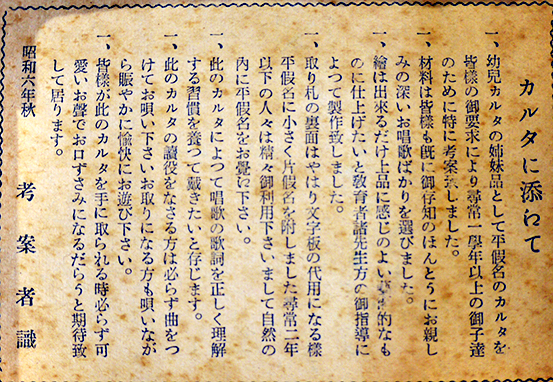 カルタに添へて
一、幼兒カルタの姉妹品として平假名のカルタを
皆樣の御要求により尋常一學年以上の御子達
のために特に考案致しました。
一、材料は皆樣も既に御存知のほんとうにお親し
みの深いお唱歌ばかりを選びました。
一、繪は出來るだけ上品に感じのよい 的なも
のに仕上げたいと敎育者諸先生方の御指導に
よつて製作致しました。
一、取り札の裏面はやはり文字板の代用になる樣
平假名に小さく片假名を附しました尋常二年
以下の人々は精々御利用下さいまして自然の
內に平假名をお覺え下さい。
一、此のカルタによつて唱歌の歌詞を正しく理解
する習慣を養つて戴きたいと存じます。
一、此のカルタの讀役をなさる方は必らず曲をつ
けてお唄い下さいお取りになる方も唄いなが
ら賑やかに愉快にお遊び下さい。
一、皆樣が此のカルタを手に取られる時必らず可
愛いお聲でお口ずさみになるだらうと期待致
して居ります。
昭和六年秋
考案者識